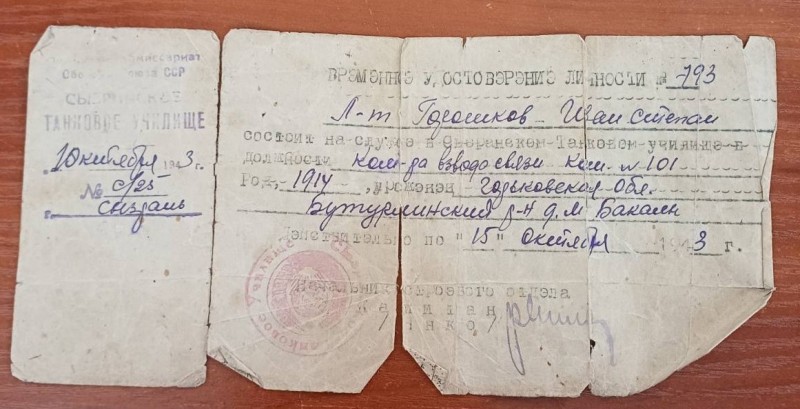 Сою ССР
СЫЗРАНСКОЕ
ТАНКОВОЕ УЧИЛИЩЕ
октября 1943 г.
№ с/25
г. Сызрань
ВРЕМЕННОЕ УДОСТОВЕРЕНИЕ ЛИЧНОСТИ № 793
Л-т Горошков Иван Степан
состоит на службе в Сызранском Танковом училище в
должности Ком-ра взвода связи Ком. № 101
Род. 1914 уроженец Горьковская обл.
Бутурлинский р-н д. М Бакалы
Действительно по "15" октября 1943 г.
Начальник строевого отдела
Капитан